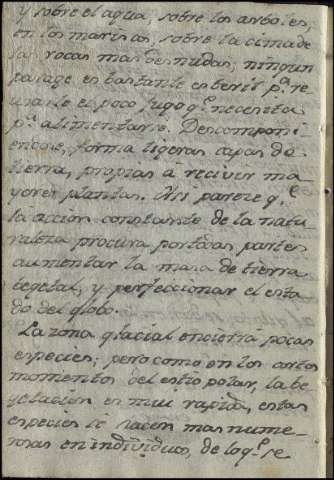 y sobre el agua, sobre los arboles,
en los mariscos, sobre la cima de
las rocas mas desnudas; ningun
parage es bastante esteril p.ª re
usarle el poco jugo q.e necesita
p.ª alimentarse. Descomponi
endose, forma ligeras capas de
tierra, propias á recivir ma
yores plantas. Asi parece q.e
la accion constante de la natu
raleza procura por todas partes
aumentar la masa de tierra
vegetal, y perfeccionar el esta
do del globo.
La zona glacial encierra pocas
especies; pero como en los cortos
momentos del estio polar, la be
jetacion es mui rapida, estas
especies se hacen mas nume
rosas en individuos, de lo q.e re